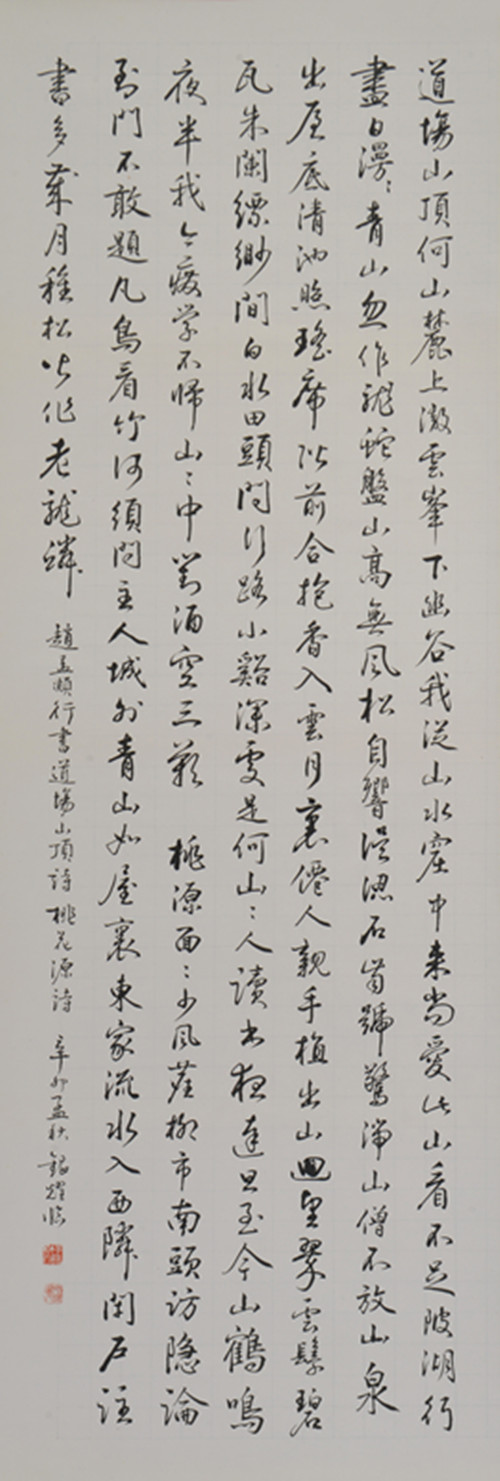 道場山頂何山麓上澈雲峯下幽谷我從山水窟中来尚愛此山看不足陂湖行
盡白漫〻青山忽作龍蛇盤山高無風松自響誤認石齒號驚湍山僧不放山泉
出屋底清池照瑤席階前合抱香入雲月裏僊人親手植出山迴望翠雲鬟碧
瓦朱闌縹緲間白水田頭問行路小谿深處是何山〻人讀書夜達旦至今山鶴鳴
夜半我今廢學不歸山〻中對酒空三歎 桃源面〻少風塵柳市南頭訪隱淪
到門不敢題凡鳥看竹何須問主人城外青山如屋裏東家流水入西隣閉戶註
書多歲月種松皆作老龍鱗 趙孟頫行書道場山頂詩桃花源詩 辛卯孟秋 銀耀臨